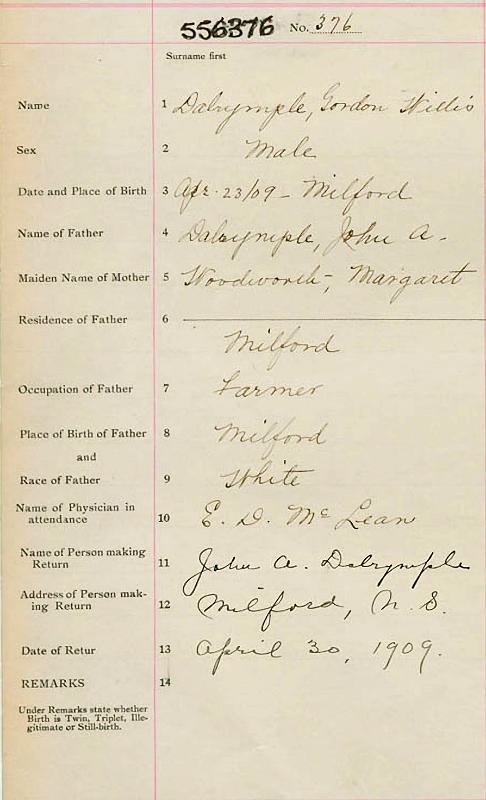 556376 No. 376
Surname first
Name 1 Dalrymple, Gordon Willis
Sex 2 Male
Date and Place of Birth 3 Apr. 23/09 - Milford
Name of Father 4 Dalrymple, John A.
Maiden Name of Mother 5 Woodworth, Margaret
Residence of Father 6
Milford
Occupation of Father 7 Farmer
Place of Birth of Father 8 Milford
and
Race of Father 9 White
Name of Physician in
attendance 10 E. D. McLean
Name of Person making
Return 11 John A. Dalrymple
Address of Person mak-
ing Return 12 Milford, N. S.
Date of Retur 13 April 30, 1909.
REMARKS 14
Under Remarks state whether
Birth is Twin, Triplet, Ille-
gitimate or Still-birth.